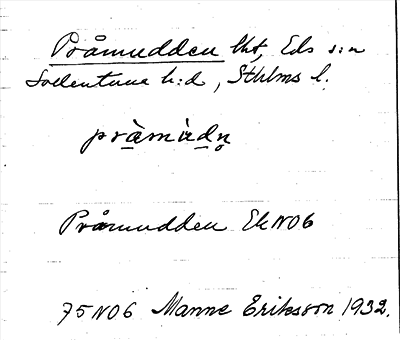 Pråmudden lht, Eds s:n
Sollentuna h:d, Sthlms l.
prå̀mùdn̥
Pråmudden Ek NO6
75 NO6 Manne Eriksson 1932.